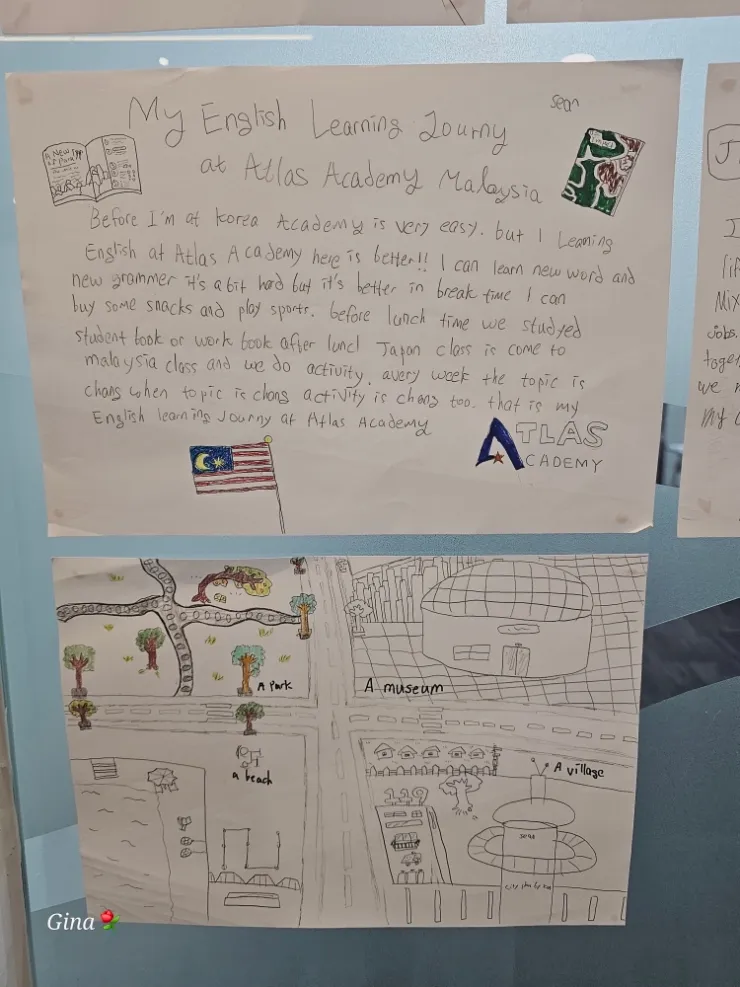 sean
My English Learning Journy
at Atlas Academy Malaysia
A New
Before I'm at Korea Academy is very easy. but I Learning
English at Atlas Academy here is better!! I can learn new word and
new grammer it's a bit hard but it's better in break time I can
buy some snacks and play sports. before lunch time we studyed
student book or work book after luncl Japan class is come to
malaysia class and we do activity. avery week the topic is
chang when topic is chang activity is chang too. that is my
English learning Journy at Atlas Academy
ATLAS
ACADEMY
A Park
A museum
a beach
A village
119
seas
Gina